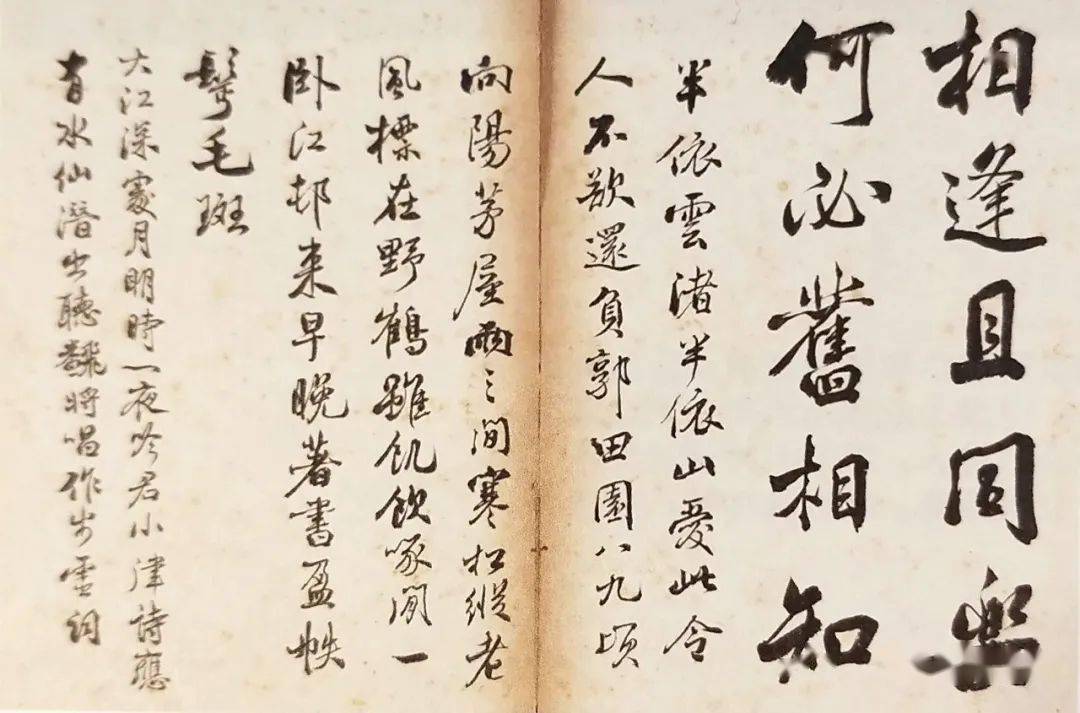 相逢且同樂
何必舊相知
半依雲渚半依山愛此令
人不欲還負郭田園八九頃
向陽茅屋兩三間寒松縱老
風標在野鶴雖飢飲啄閒一
卧江邨来早晚著書盈帙
鬢毛斑
大江深處月明時一夜吟君小津詩應
有水仙潛出聽翻將唱作步雲詞